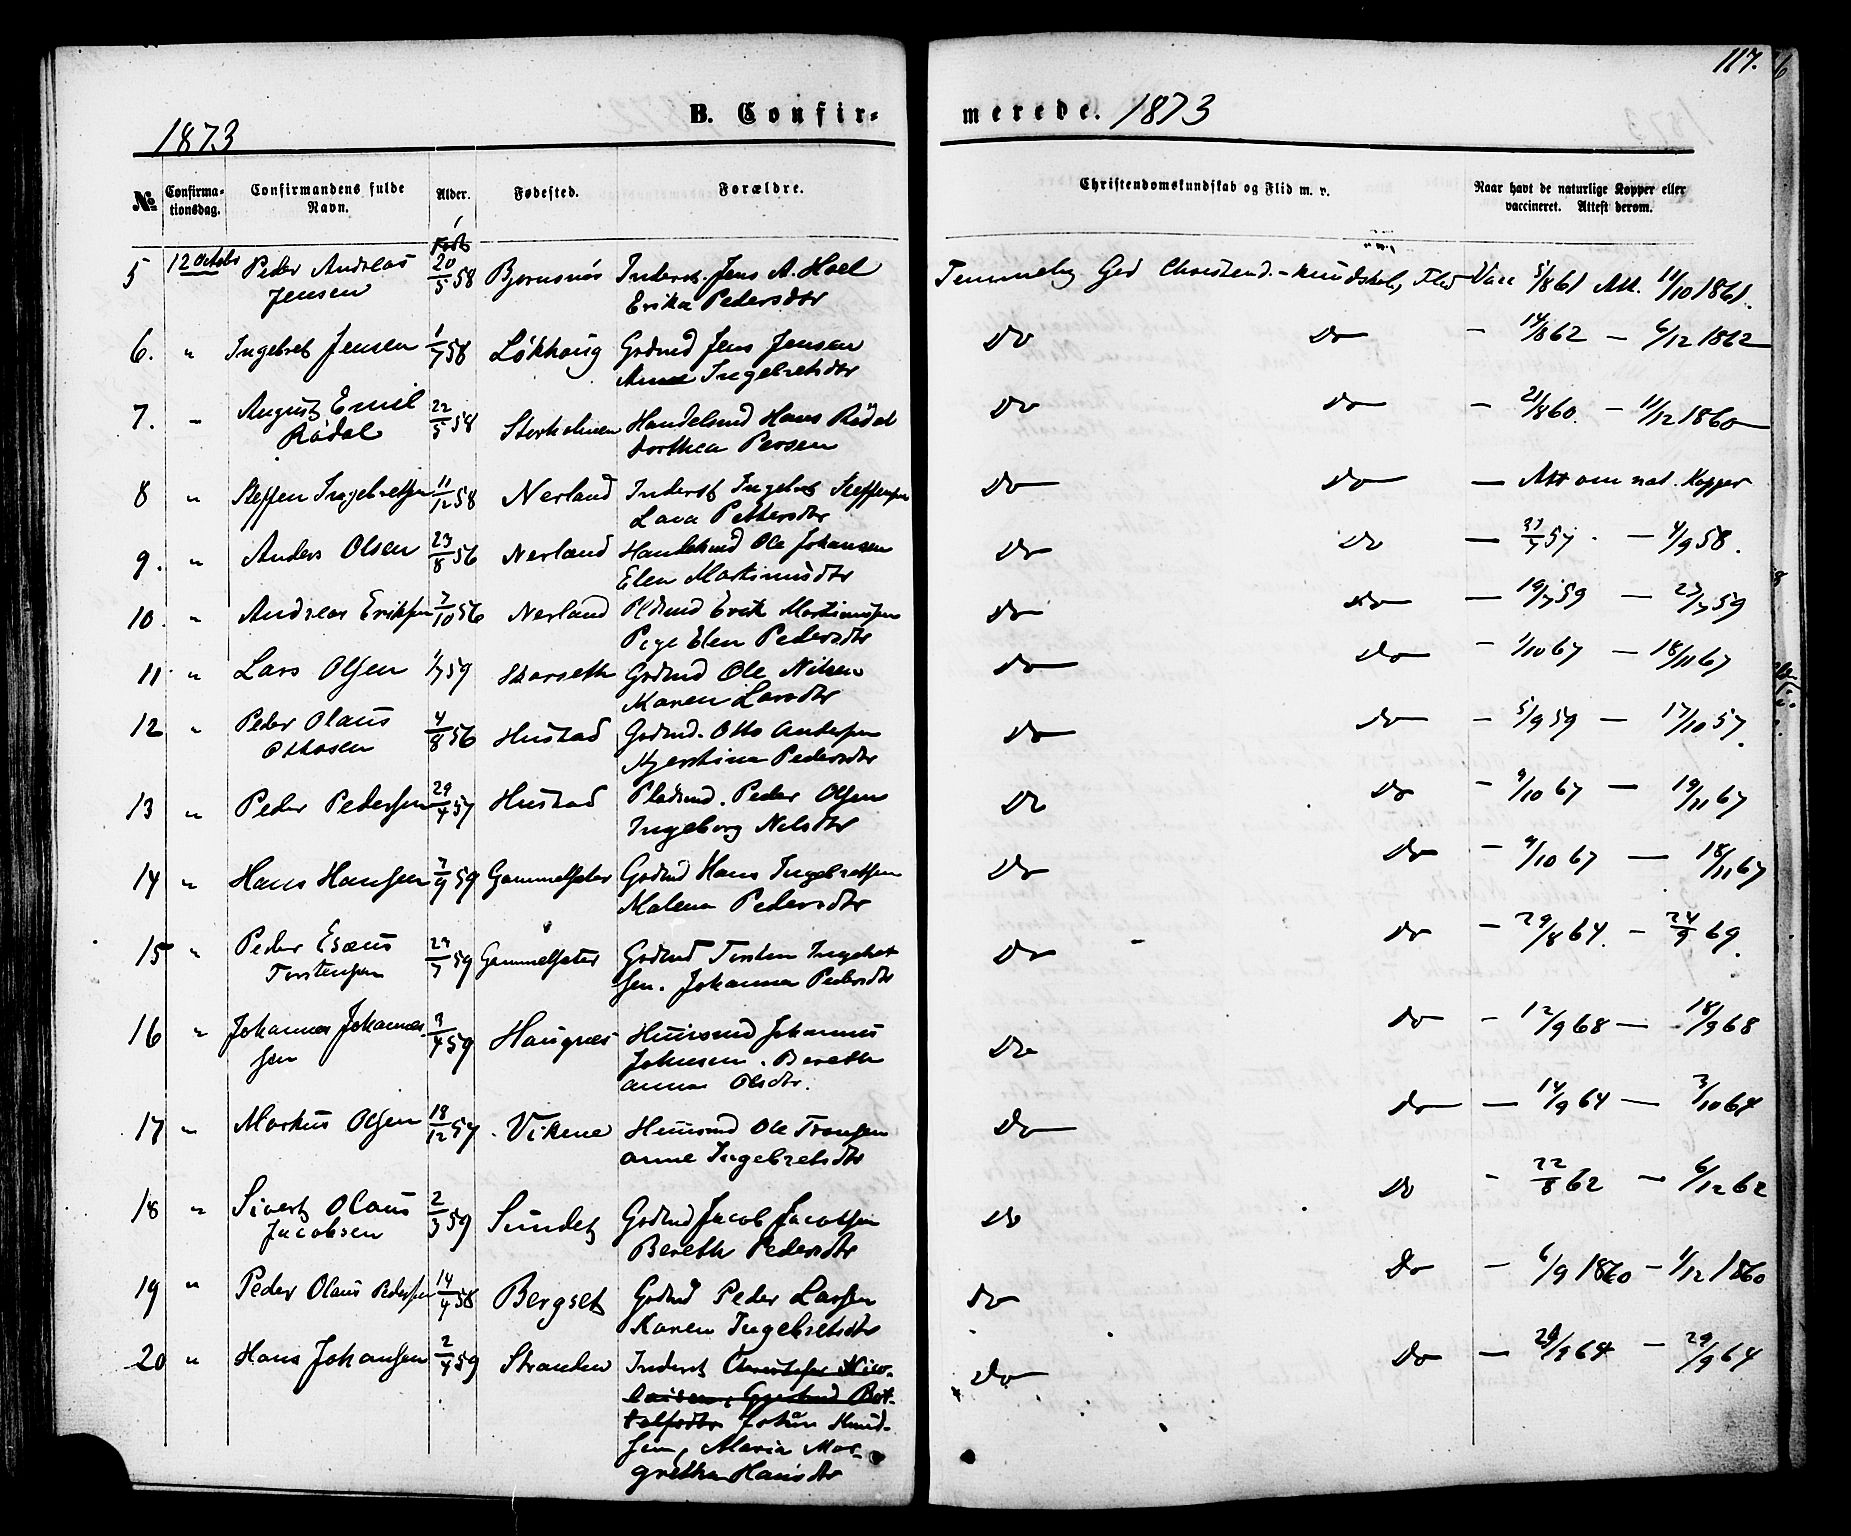 117.
1873
B. Confir-
merede. 1873
No
Confirma-
tionsdag.
Confirmandens fulde
Navn.
Alder.
Fødested.
Forældre.
Christendomskundskab og Flid m. v.
Naar havt de naturlige Kopper eller
vaccineret. Attest derom.
5 12 Octob Peder Andreas Jensen 20/5 58 Bjørnsnøs Inderst. Jens A. Hoel
Erika Pedersdtr
Temmelig God Christend.-kundskab, Flid Vacc 5/8 61 Att. 11/10 1861.
6. " Ingebret Jensen 1/7 58 Løkhoug Grdmd Jens Jensen
Anne Ingebretsdtr
Do Do - 14/8 62 - 6/12 1862
7. " August Emil Rødal 22/5 58 Storholmen Handelsmd Hans Rødal
Dorthea Persen
Do Do - 21/8 60. - 11/12 1860
8 " Steffen Ingebretsen 11/12 58 Nerland Inderst Ingebret Steffensen
Lava Pettersdtr
Do Do - Att om nat. Kopper
9. " Anders Olsen 23/8 56 Nerland Handelsmd Ole Johansen
Elen Martinusdtr
Do Do - 57 - 4/9 58.
10. " Andreas Eriksen 7/10 56 Nerland Pldsmd Erik Martinusen
Pige Elen Pedersdtr
Do Do - 19/7 59 - 23/7 59
11. " Lars Olsen 1/7 59 Skarseth Grdmd Ole Nilsen
Karen Larsdtr
Do Do - 1/10 67 - 18/11 67
12 " Peder Olaus Ottosen 4/8 56 Hustad Grdmd. Otto Andersen
Kjerstina Pedersdtr
Do Do - 5/9 59 - 17/10 57.
13 " Peder Pedersen 29/4 57 Hustad Pladsmd. Peder Olsen
Ingeborg Nilsdtr
Do Do - 9/10 67 - 19/11 67
14 " Hans Hansen 7/9 59 Gammelsæter Grdmd Hans Ingebretsen
Malena Pedersdtr
Do Do - 9/10 67 - 18/11 67
15 " Peder Esæus Torstensen 59 Gammelsæter Grdmd Torsten Ingebret
sen. Johanna Pedersdtr
Do Do - 29/8 64. - 24/9 69.
16 " Johannes Johannes
sen 3/4 59 Haugnæs Huusmd Johannes
Johnsen. Bereth
anna Olsdtr.
Do Do - 12/9 68 - 18/9 68
17 " Markus Olsen 18/12 57 Vikene Huusmd Ole Tronsen
anne Ingebretsdtr
Do Do - 14/9 64 - 3/10 64
18 " Sivert Olaus Jacobsen 2/3 59 Sundet Grdmd Jacob Jacobsen
Bereth Pedersdtr
Do Do - 22/8 62 - 6/12 62
19 " Peder Olaus Pedersen 14/4 58 Bergset Grdmd Peder Larsen
Karen Ingebretsdtr
Do Do - 6/9 1860 - 1/12 1860
20 " Hans Johansen 2/4 59 Stranden Inderst Christofer Nico-
laisen, Gjertrud Bot-
tolfsdtr Johan Knud-
sen, Maria Mar-
gretha Hansdtr
Do Do - 29/9 64 - 29/9 64